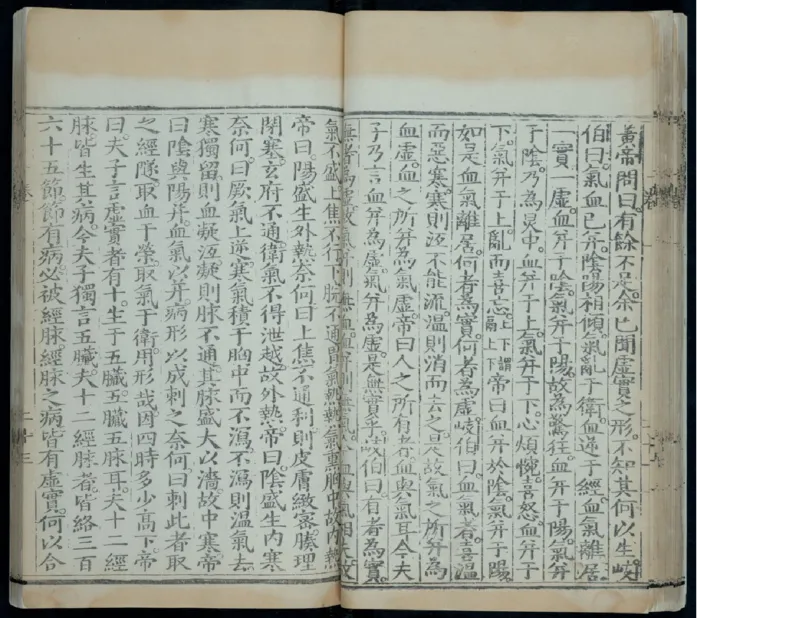 黃帝問曰。有餘不足。余已聞虛實之形。不知其何以生。岐
伯曰。氣血已并。陰陽相傾。氣亂于衛。血逆于經。血氣離居。
一實一虛。血并于陰。氣并于陽。故為驚狂。血并于陽。氣并
于陰。乃為炅中。血并于上。氣并于下。心煩惋。喜怒。血并于
下。氣并于上。亂而喜忘。上下謂鬲上下帝曰。血并於陰。氣并于陽。
如是血氣離居。何者為實。何者為虛。岐伯曰。血氣者。喜溫
而惡寒。寒則泣不能流。溫則消而去之。是故氣之所并為
血虛。血之所并為氣虛。帝曰。人之所有者。血與氣耳。今夫
子乃言血并為虛。氣并為虛。是無實乎。岐伯曰。有者為實。
無者為虛。故氣并則無血。血并則無氣。血與氣相失。故
氣不盛。上焦不行。下脘不通。胃氣熱。熱氣熏胸中。故內熱
帝曰。陽盛生外熱奈何。曰上焦不通利。則皮膚緻密。腠理
閉塞。玄府不通。衛氣不得泄越。故外熱。帝曰。陰盛生內寒
奈何。曰厥氣上逆。寒氣積于胸中而不瀉。不瀉則溫氣去
寒獨留。則血凝泣。凝則脉不通。其脉盛大以濇。故中寒。帝
曰。陰與陽并。血氣以并。病形以成。刺之奈何。曰刺此者。取
之經隧。取血于榮。取氣于衛。用形哉。因四時多少高下。帝
曰。夫子言虛實者有十。生于五臟。五臟五脉耳。夫十二經
脉皆生其病。今夫子獨言五臟。夫十二經脉者。皆絡三百
六十五節。節有病。必被經脉。經脉之病。皆有虛實。何以合
二十三